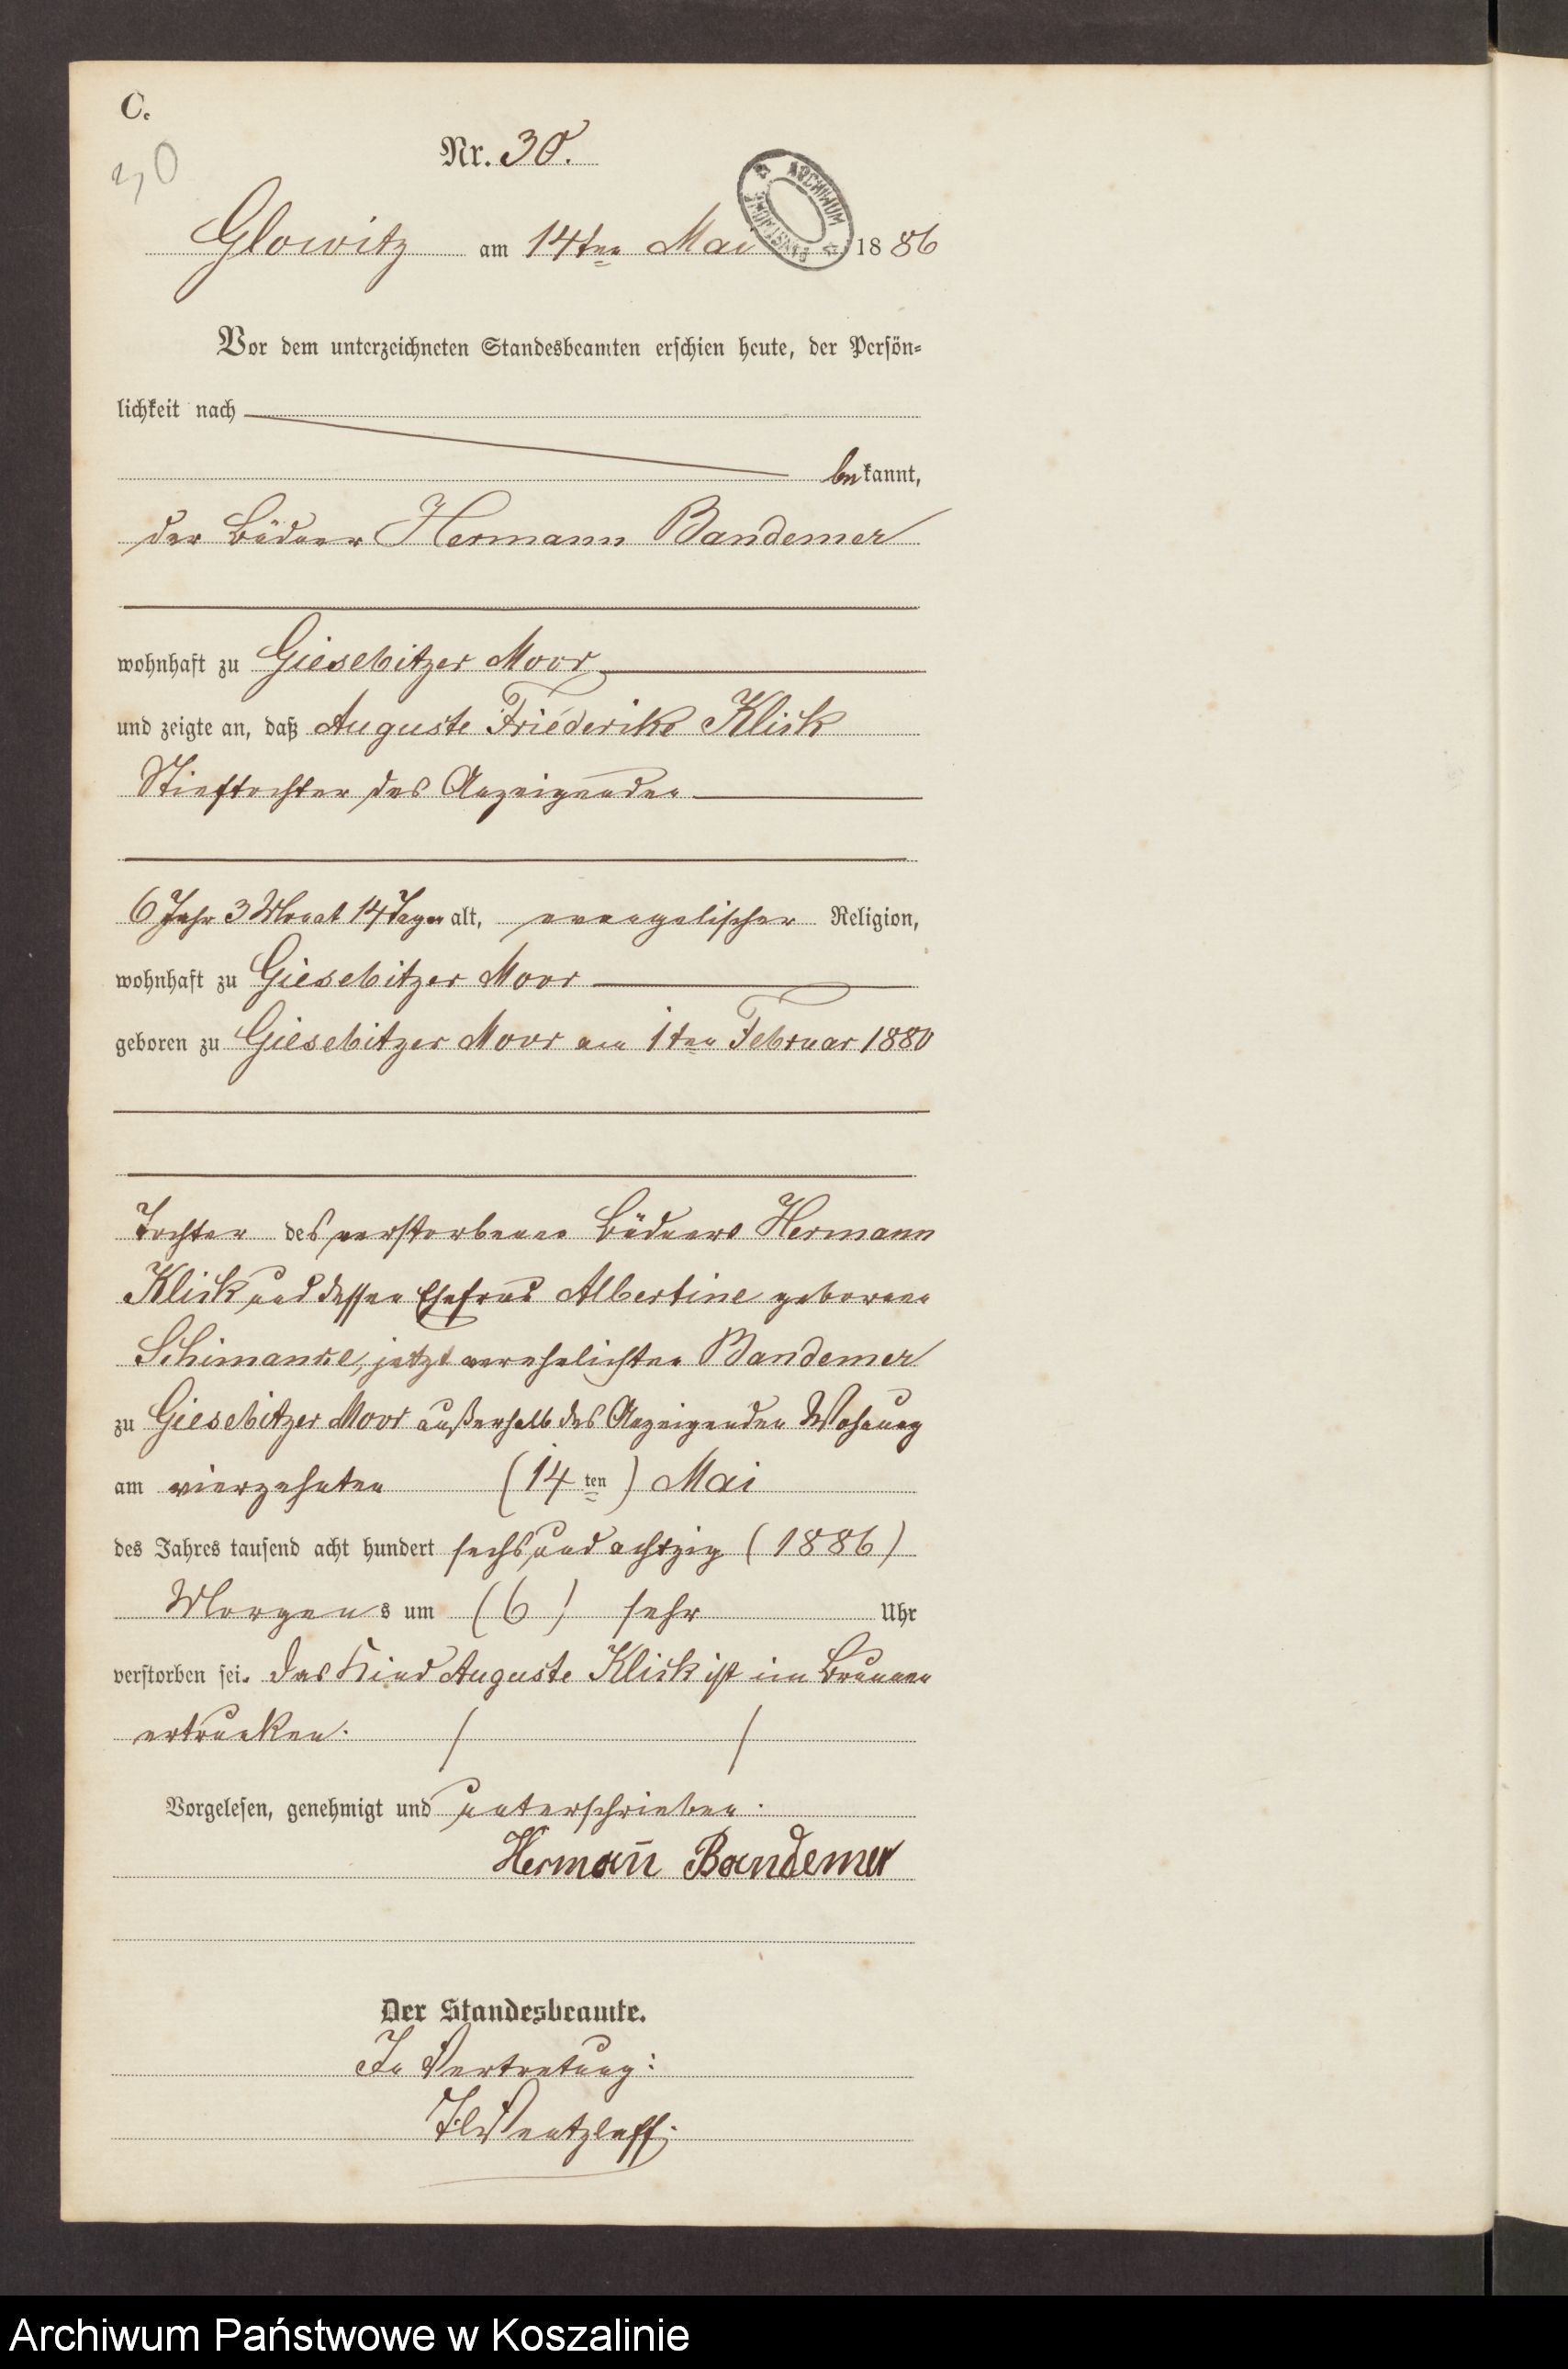 C.
30
Nr. 30.
ARCHIWUM PAŃSTWOWE
Glowitz am 14ten Mai 1886
Vor dem unterzeichneten Standesbeamten erschien heute, der Persön=
lichkeit nach
bekannt,
der Büdner Hermann Bandemer
wohnhaft zu Giesebitzer Moor
und zeigte an, daß Auguste Friederike Klick
Stieftochter des Anzeigenden
6 Jahr 3 Monat 14 Tage alt, evangelischer Religion,
wohnhaft zu Giesebitzer Moor
geboren zu Giesebitzer Moor am 1ten Februar 1880
Tochter des verstorbenen Büdners Hermann
Klick und dessen Ehefrau Albertine geborene
jetzt verehelichten Bandemer
zu Giesebitzer Moor außerhalb des Anzeigenden Wohnung
am vierzehnten (14ten) Mai
des Jahres tausend acht hundert sechs und achtzig (1886)
Morgens um (6) sechs Uhr
verstorben sei. Das Kind Auguste Klick ist im Brunnen
ertrunken.
Vorgelesen, genehmigt und unterschrieben.
Herman̄ Bandemer
Der Standesbeamte.
In Vertretung:
Wentzlaff.
Archiwum Państwowe w Koszalinie